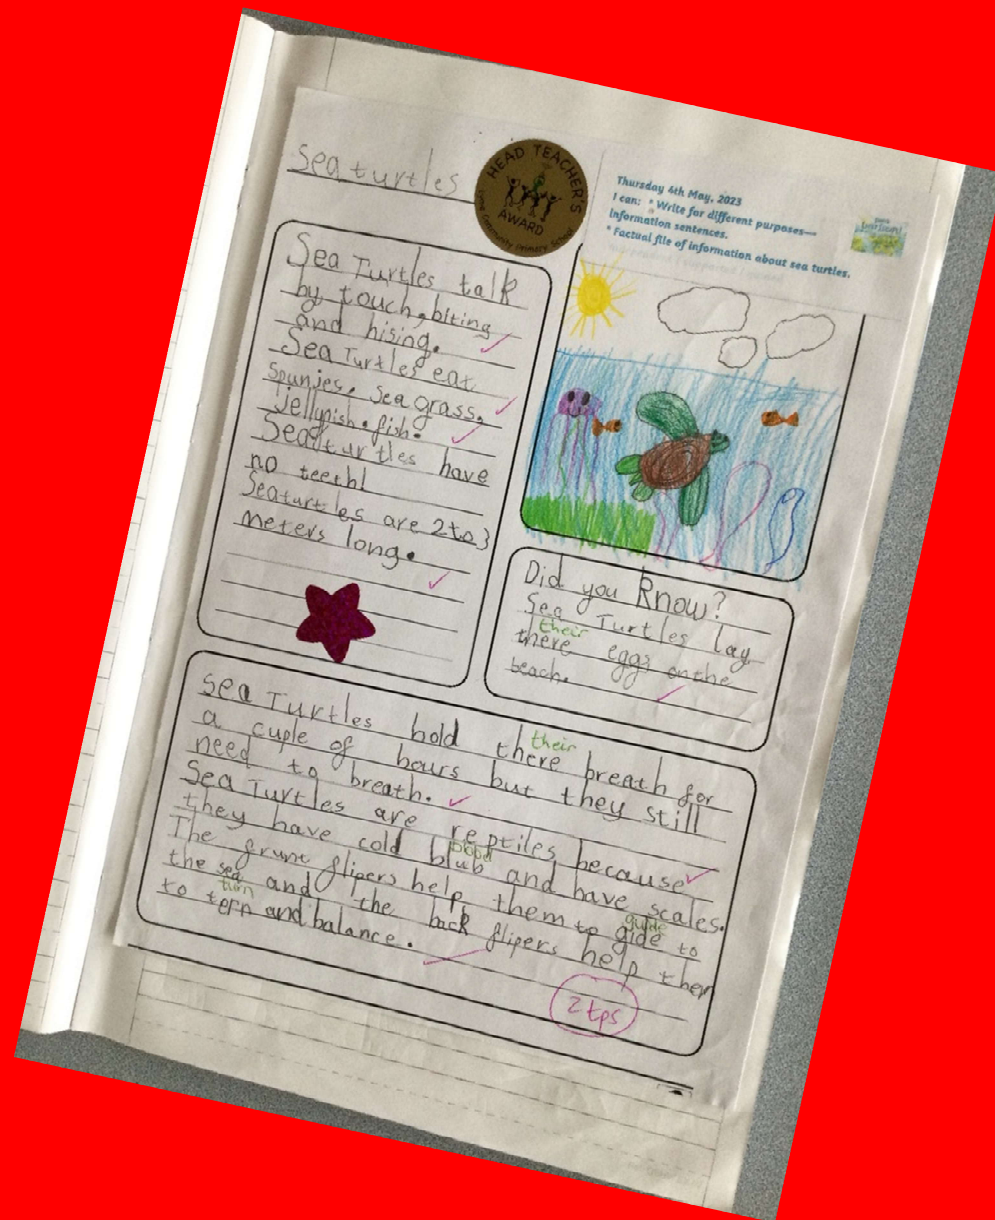 sea turtles
HEAD TEACHER'S
AWARD
Community Primary School
Thursday 4th May, 2023
I can: * Write for different purposes—
information sentences.
* Factual file of information about sea turtles.
Sea Turtles talk
by touch, biting
and hising.
Sea Turtles eat
Spunjes, Sea grass,
jellyfish. fish.
Sea turtles have
no teeth!
Sea turtles are 2 to 3
meters long.
Did you Know?
Sea Turtles lay
their
there eggs on the
beach.
sea Turtles hold there breath for
their
a cuple of hours but they still
need to breath.
Sea Turtles are reptiles because
they have cold blub and have scales.
blood
The frunt flipers help them to gide to
guide
the sea and the back flipers help them
turn
to tern and balance.
2 tps